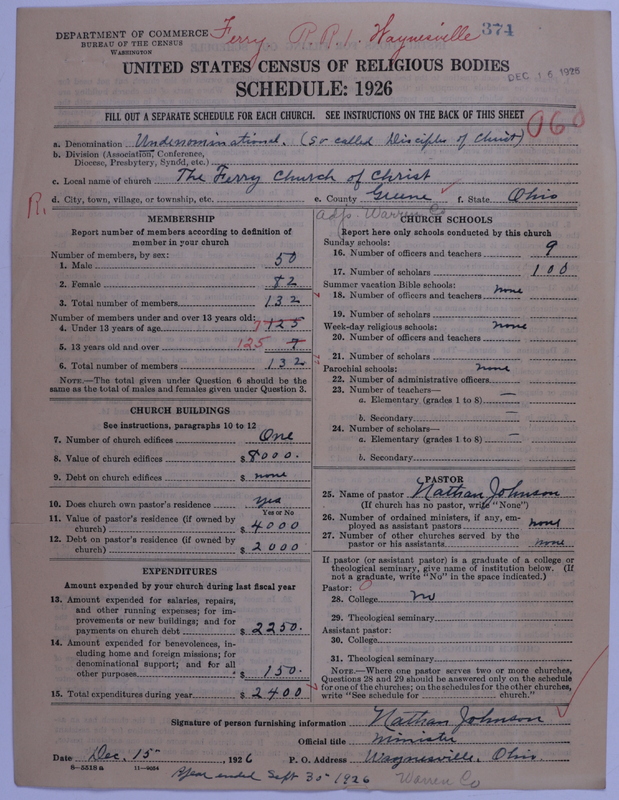 DEPARTMENT OF COMMERCE
BUREAU OF THE CENSUS
WASHINGTON
Ferry. R.R.1. Waynesville
374
UNITED STATES CENSUS OF RELIGIOUS BODIES
DEC 16 1926
SCHEDULE: 1926
FILL OUT A SEPARATE SCHEDULE FOR EACH CHURCH. SEE INSTRUCTIONS ON THE BACK OF THIS SHEET
060
a. Denomination Undenominational. (So called Disciples of Christ)
b. Division (Association, Conference, Diocese, Presbytery, Synod, etc.)
c. Local name of church The Ferry Church of Christ
R.
d. City, town, village, or township, etc. e. County Greene f. State Ohio
adj. Warren Co
MEMBERSHIP
Report number of members according to definition of member in your church
Number of members, by sex:
1. Male 50
2. Female 82
3. Total number of members 132
Number of members under and over 13 years old:
4. Under 13 years of age 7 125
5. 13 years old and over 125 7
6. Total number of members 132
NOTE.—The total given under Question 6 should be the same as the total of males and females given under Question 3.
CHURCH BUILDINGS
See instructions, paragraphs 10 to 12
7. Number of church edifices One
8. Value of church edifices $ 8000.
9. Debt on church edifices $ none
10. Does church own pastor's residence yes
Yes or No
11. Value of pastor's residence (if owned by church) $ 4000
12. Debt on pastor's residence (if owned by church) $ 2000
EXPENDITURES
Amount expended by your church during last fiscal year
13. Amount expended for salaries, repairs, and other running expenses; for improvements or new building; and for payments on church debt $ 2250.
14. Amount expended for benevolences, including home and foreign missions; for denominational support; and for all other purposes $ 150.
15. Total expenditures during year $ 2400
CHURCH SCHOOLS
Report here only schools conducted by this church
Sunday schools:
16. Number of officers and teachers 9
17. Number of scholars 100
Summer vacation Bible schools: none
18. Number of officers and teachers
19. Number of scholars
Week-day religious schools: none
20. Number of officers and teachers
21. Number of scholars
Parochial schools: none
22. Number of administrative officers
23. Number of teachers—
a. Elementary (grades 1 to 8) —
b. Secondary
24. Number of scholars—
a. Elementary (grades 1 to 8) —
b. Secondary
PASTOR
25. Name of pastor Nathan Johnson
(If church has no pastor, write "None")
26. Number of ordained ministers, if any, employed as assistant pastors none
27. Number of other churches served by the pastor or his assistants none
If pastor (or assistant pastor) is a graduate of a college or theological seminary, give name of institution below. (If not a graduate, write "No" in the space indicated.)
Pastor: 0
28. College No
29. Theological seminary
Assistant pastor:
30. College
31. Theological seminary
NOTE.—Where one pastor serves two or more churches, Questions 28 and 29 should be answered only on the schedule for one of the churches; on the schedules for the other churches, write "See schedule for church."
Signature of person furnishing information Nathan Johnson
Official title Minister
Date Dec. 15, 1926 P. O. Address Waynesville, Ohio.
8—5518a 11—9054
Year ended Sept 30 1926 Warren Co